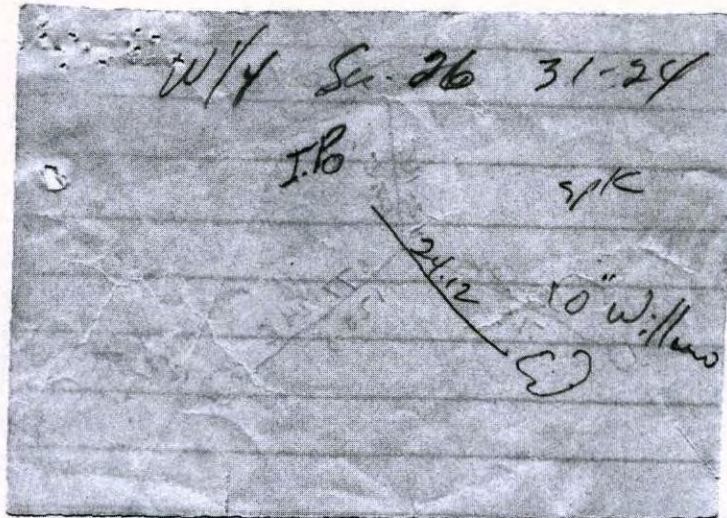 W 1/4 Sec. 26 31-24
I.Po
spk
24.12
10" Willow